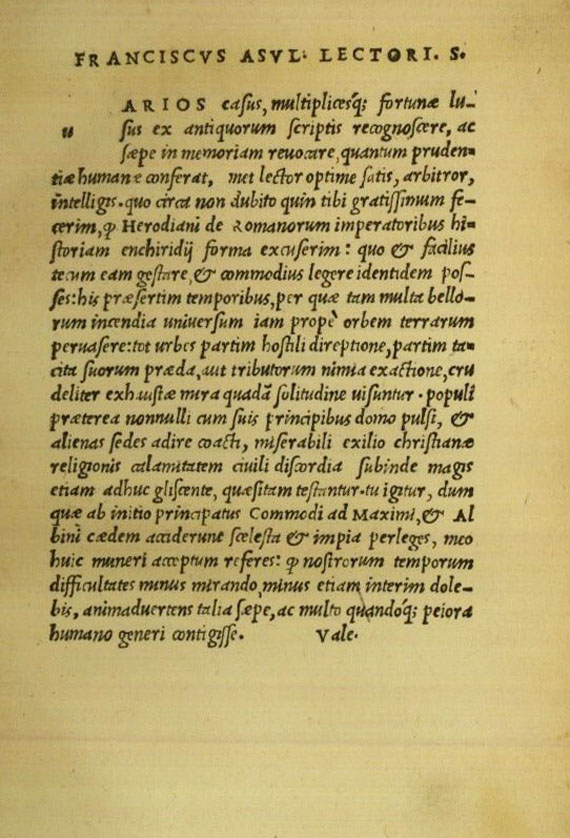 FRANCISCVS ASVL. LECTORI. S.
ARIOS casus, multiplicesq́; fortunæ lu-
u sus ex antiquorum scriptis recognoscere, ac
sæpe in memoriam reuocare, quantum pruden-
tiæ humanæ conferat, met lector optime satis, arbitror,
intelligis. quo circa non dubito quin tibi gratissimum fe-
cerim, ꝙ Herodiani de Romanorum imperatoribus hi-
storiam enchiridij forma excuserim: quo & facilius
tecum eam gestare, & commodius legere identidem pos-
ses: his præsertim temporibus, per quæ tam multa bello-
rum incendia uniuersum iam propè orbem terrarum
peruasere: tot urbes partim hostili direptione, partim ta-
cita suorum præda, aut tributorum nimia exactione, cru
deliter exhaustæ mira quadã solitudine uisuntur. populi
præterea nonnulli cum suis principibus domo pulsi, &
alienas sedes adire coacti, miserabili exilio christianæ
religionis calamitatem ciuili discordia subinde magis
etiam adhuc gliscente, quæsitam testantur. tu igitur, dum
quæ ab initio principatus Commodi ad Maximi, & Al
bini cædem acciderunt scelesta & impia perleges, meo
huic muneri acceptum referes: ꝙ nostrorum temporum
difficultates minus mirando, minus etiam interim dole-
bis, animaduertens talia sæpe, ac multo quandoq́; peiora
humano generi contigisse. Vale.